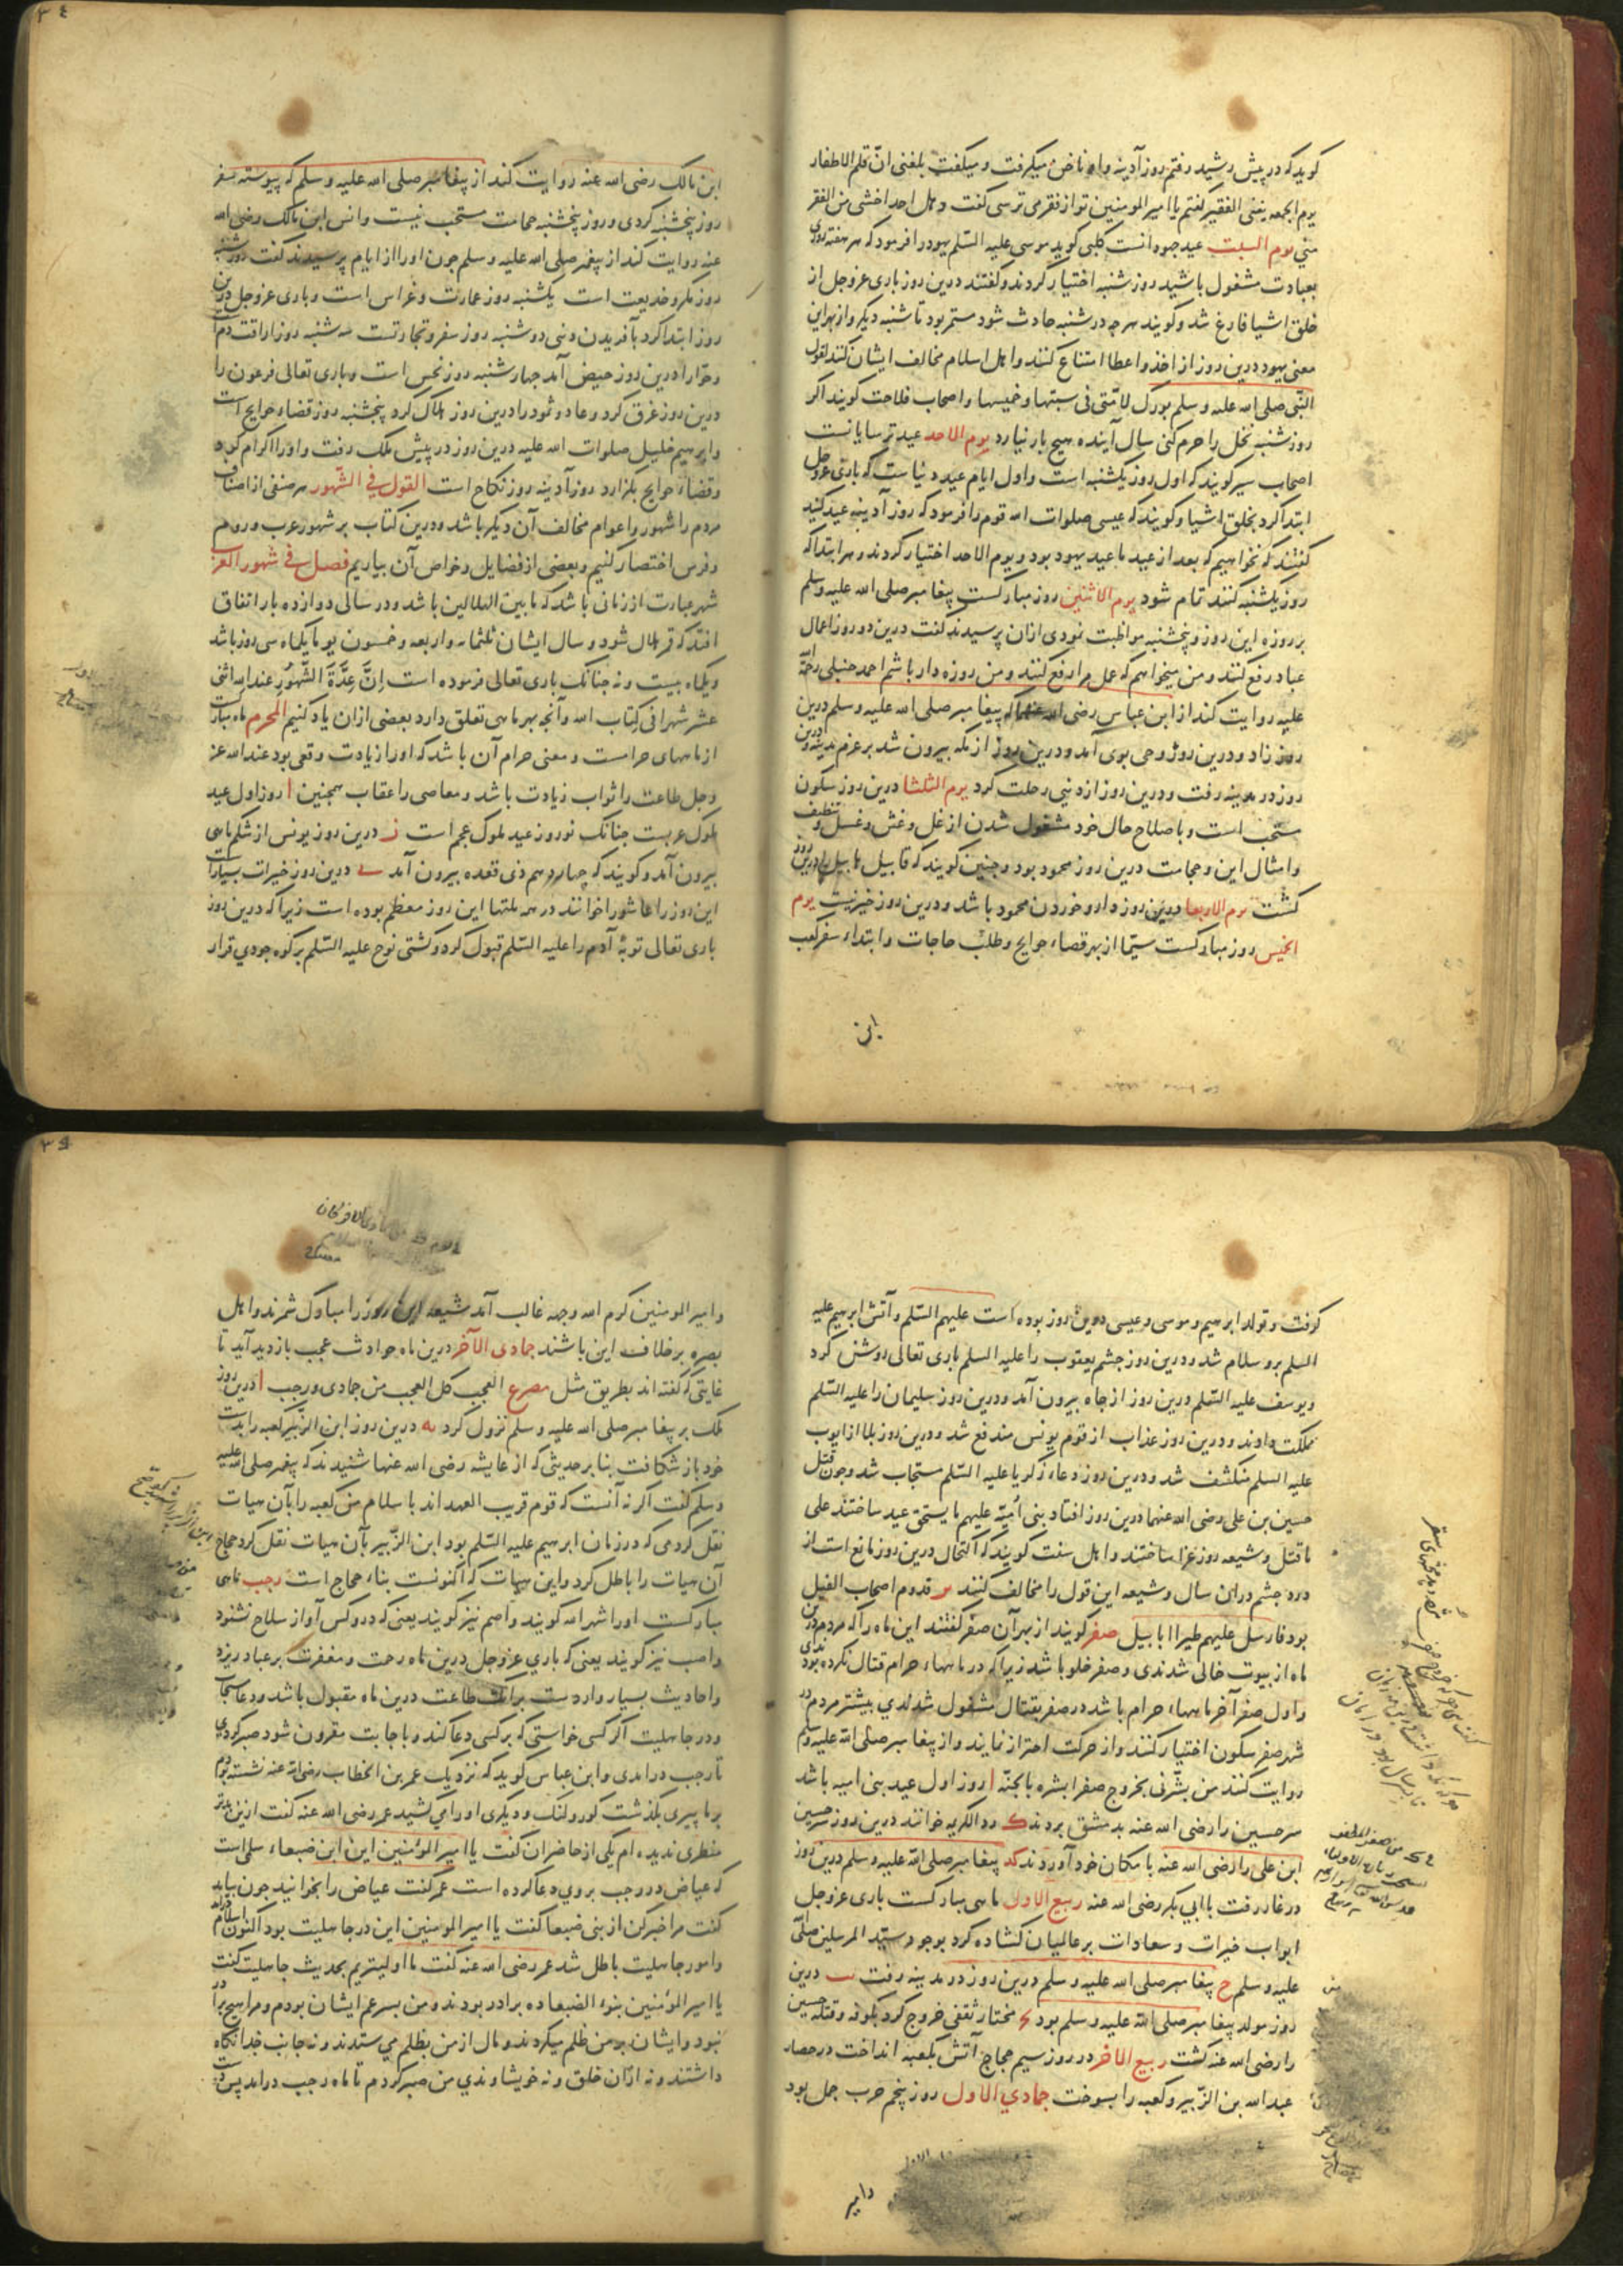 گوید که در پیش رشید رفتم روز آدینه واو ناخن میگرفت و میگفت بلغنی انّ قلم الاظفار
یوم الجمعه ینفی الفقیر گفتم یا امیر المومنین تو از فقر می ترسی گفت و هل احد اخشی من الفقر
منّی یوم السبت عید جهودانست کلبی گوید موسی علیه السّلم یهود را فرمود که هر هفته روزی
بعبادت مشغول باشید روز شنبه اختیار کردند و گفتند درین روز باری عزوجل از
خلق اشیا فارغ شد و گویند هرچه در شنبه حادث شود مستمر بود تا شنبه دیگر و از بهر این
معنی یهود درین روز از اخذ و اعطا امتناع کنند و اهل اسلام مخالف ایشان کنند لقول
النّبی صلی الله علیه وسلم بورک لامّتی فی سبتها و خمیسها و اصحاب فلاحت گویند اگر
روز شنبه نخل را خرم کنی سال آینده هیچ بار نیارد یوم الاحد عید ترسایانست
اصحاب سیر گویند که اول روز یکشنبه است و اول ایام عید دنیاست که باری عزوجل
ابتدا کرد بخلق اشیا و گویند که عیسی صلوات الله قوم را فرمود که روز آدینه عید کنید
گفتند که نخواهیم که بعد از عید ما عید یهود بود و یوم الاحد اختیار کردند و هر ابتدا که
روز یکشنبه کنند تمام شود یوم الاثنین روز مبارکست پیغامبر صلی الله علیه وسلم
بر روزه این روز و پنجشنبه مواظبت نمودی ازان پرسیدند گفت درین دو روز اعمال
عباد رفع کنند و من میخواهم که عمل مرا رفع کنند و من روزه دار باشم احمد حنبلی رحمة الله
علیه روایت کند از ابن عباس رضی الله عنهما که پیغامبر صلی الله علیه وسلم درین
روز زاد و درین روز وحی بوی آمد و درین روز از مکه بیرون شد بر عزم مدینه و درین
روز در مدینه رفت و درین روز از دنیی رحلت کرد یوم الثلثا درین روز سکون
مستحب است و باصلاح حال خود مشغول شدن از غل و غش و غسل و تنظیف
و امثال این و حجامت درین روز محمود بود و چنین گویند که قابیل هابیل را درین روز
کشت یوم الاربعا درین روز دارو خوردن محمود باشد و درین روز خیر نیست یوم
الخمیس روز مبارکست سیّما از بهر قضاء حوایج و طلب حاجات و ابتداء سفر کعب
ابن
٣٤
ابن مالک رضی الله عنه روایت کند از پیغامبر صلی الله علیه وسلم که پیوسته سفر
روز پنجشنبه کردی و روز پنجشنبه حجامت مستحب نیست و انس ابن مالک رضی الله
عنه روایت کند از پیغمبر صلی الله علیه وسلم چون اورا از ایام پرسیدند گفت روز شنبه
روز مکر و خدیعت است یکشنبه روز عمارت و غراس است و باری عزوجل درین
روز ابتدا کرد بآفریدن دنیی دوشنبه روز سفر و تجارتست سه شنبه روز اراقت دم
و حوّا را درین روز حیض آمد چهارشنبه روز نحس است و باری تعالی فرعون را
درین روز غرق کرد و عاد و ثمود را درین روز هلاک کرد پنجشنبه روز قضاء حوایج است
و ابرهیم خلیل صلوات الله علیه درین روز در پیش ملک رفت و اورا اکرام کرد
و قضاء حوایج بگزارد روز آدینه روز نکاح است القول فی الشّهور هر صنفی از اصناف
مردم را شهور و اعوام مخالف آن دیگر باشد و درین کتاب بر شهور عرب و روم
و فرس اختصار کنیم و بعضی از فضایل و خواص آن بیاریم فصل فی شهور العرب
شهر عبارت از زمانی باشد که ما بین الهلالین باشد و در سالی دوازده بار اتفاق
افتد که قمر هلال شود و سال ایشان ثلثمایه و اربعه و خمسون یوما یکماه سی روز باشد
و یکماه بیست و نه چنانک باری تعالی فرموده است اِنَّ عِدَّةَ الشُّهُورِ عند الله اثنی
عشر شهرا فی کتاب الله و آنچه بهر ماهی تعلق دارد بعضی ازان یاد کنیم المحرم ماه مبارکست
از ماههای حرامست و معنی حرام آن باشد که اورا زیادت وقعی بود عند الله عز
وجل طاعت را ثواب زیادت باشد و معاصی را عقاب همچنین ا روز اول عید
ملوک عربست چنانک نوروز عید ملوک عجم است ز درین روز یونس از شکم ماهی
بیرون آمد و گویند که چهاردهم ذی قعده بیرون آمد ی درین روز خیرات بسیار است
این روز را عاشورا خوانند در همه ملتها این روز معظم بوده است زیرا که درین روز
باری تعالی توبۀ آدم را علیه السّلم قبول کرد و کشتی نوح علیه السّلم بر کوه جودی قرار
گرفت و تولد ابرهیم و موسی و عیسی درین روز بوده است علیهم السّلم و آتش ابرهیم علیه
السلم برو سلام شد و درین روز چشم یعقوب را علیه السلم باری تعالی روشن کرد
و یوسف علیه السّلم درین روز از چاه بیرون آمد و درین روز سلیمان را علیه السّلم
مملکت دادند و درین روز عذاب از قوم یونس مندفع شد و درین روز بلا از ایوب
علیه السلم منکشف شد و درین روز دعاء زکریا علیه السّلم مستجاب شد و چون قتل
حسین بن علی رضی الله عنهما درین روز افتاد بنی امیّه علیهم ما یستحق عید ساختند علی
ما قتل و شیعه روز عزا ساختند و اهل سنت گویند که اکتحال درین روز مانع است از
درد چشم دران سال و شیعه این قول را مخالف کنند قدوم اصحاب الفیل
بود فارسل علیهم طیرا ابابیل صفر گویند از بهر آن صفر گفتند این ماه را که مردم درین
ماه از بیوت خالی شدندی و صفر خلو باشد زیرا که در ماههاء حرام قتال نکرده بودندی
و اول صفر آخر ماههاء حرام باشد در صفر بقتال مشغول شدندی بیشتر مردم در
شهر صفر سکون اختیار کنند و از حرکت احتراز نمایند و از پیغامبر صلی الله علیه وسلم
روایت کنند من بشّرنی بخروج صفر ابشره بالجنّه ا روز اول عید بنی امیه باشد
سر حسین را رضی الله عنه بدمشق بردند ک رد الکریه خوانند درین روز سر حسین
ابن علی را رضی الله عنه با مکان خود آوردند کد پیغامبر صلی الله علیه وسلم درین روز
در غار رفت با ابی بکر رضی الله عنه ربیع الاول ماهی مبارکست باری عزوجل
ابواب خیرات و سعادات بر عالمیان گشاده کرد بوجود سیّد المرسلین صلّی
علیه وسلم ح پیغامبر صلی الله علیه وسلم درین روز در مدینه رفت یب درین
روز مولد پیغامبر صلی الله علیه وسلم بود مختار ثقفی خروج کرد بکوفه و قتله حسین
را رضی الله عنه کشت ربیع الاخر در روز سیم حجاج آتش بکعبه انداخت در حصار
عبدالله بن الزّبیر و کعبه را بسوخت جمادی الاول روز پنجم حرب جمل بود
وامیر
و امیر المومنین کرم الله وجهه غالب آمد شیعه این روز را مبارک شمرند و اهل
بصره بر خلاف این باشند جمادی الآخر درین ماه حوادث عجب بازدید آید تا
غایتی که گفته اند بطریق مثل مصرع العجب کل العجب من جمادی و رجب ا درین روز
ملک بر پیغامبر صلی الله علیه وسلم نزول کرد یه درین روز ابن الزّبیر کعبه را بدست
خود باز شکافت بنا بر حدیثی که از عایشه رضی الله عنها شنیدند که پیغمبر صلی الله علیه
وسلم گفت اگر نه آنست که قوم قریب العهد اند باسلام من کعبه را بآن هیات
نقل کردمی که در زمان ابرهیم علیه السّلم بود ابن الزّبیر بآن هیات نقل کرد حجاج
آن هیات را باطل کرد و این هیات که اکنونست بناء حجاج است رجب ماهی
مبارکست اورا شهر الله گویند و اصم نیز گویند یعنی که درو کس آواز سلاح نشنود
و اصب نیز گویند یعنی که باری عزوجل درین ماه رحمت و مغفرت بر عباد ریزد
و احادیث بسیار واردست برانک طاعت درین ماه مقبول باشد و دعا مستجاب
و در جاهلیت اگر کسی خواستی که بر کسی دعا کند و باجابت مقرون شود صبر کردی
تا رجب درآمدی و ابن عباس گوید که نزدیک عمر بن الخطاب رضی الله عنه نشسته بودم
بر ما پیری بگذشت کور و لنگ و دیگری اورا می کشید عمر رضی الله عنه گفت ازین بدتر
منظری ندیده ام یکی از حاضران گفت یا امیر المؤمنین این ابن ضبعاء سلمی است
که عیاض در رجب بروی دعا کرده است عمر گفت عیاض را بخوانید چون بیامد
گفت مرا خبر کن از بنی ضبعا گفت یا امیر المومنین این در جاهلیت بود اکنون اسلام آمد
و امور جاهلیت باطل شد عمر رضی الله عنه گفت ما اولیتریم بحدیث جاهلیت گفت
یا امیر المؤمنین بنوء الضبعا ده برادر بودند و من پسر عم ایشان بودم و مرا هیچ برادر
نبود و ایشان بر من ظلم میکردند و مال از من بظلم می ستدند و نه جانب خدا نگاه
داشتند و نه ازان خلق و نه خویشاوندی من صبر کردم تا ماه رجب درآمد پس